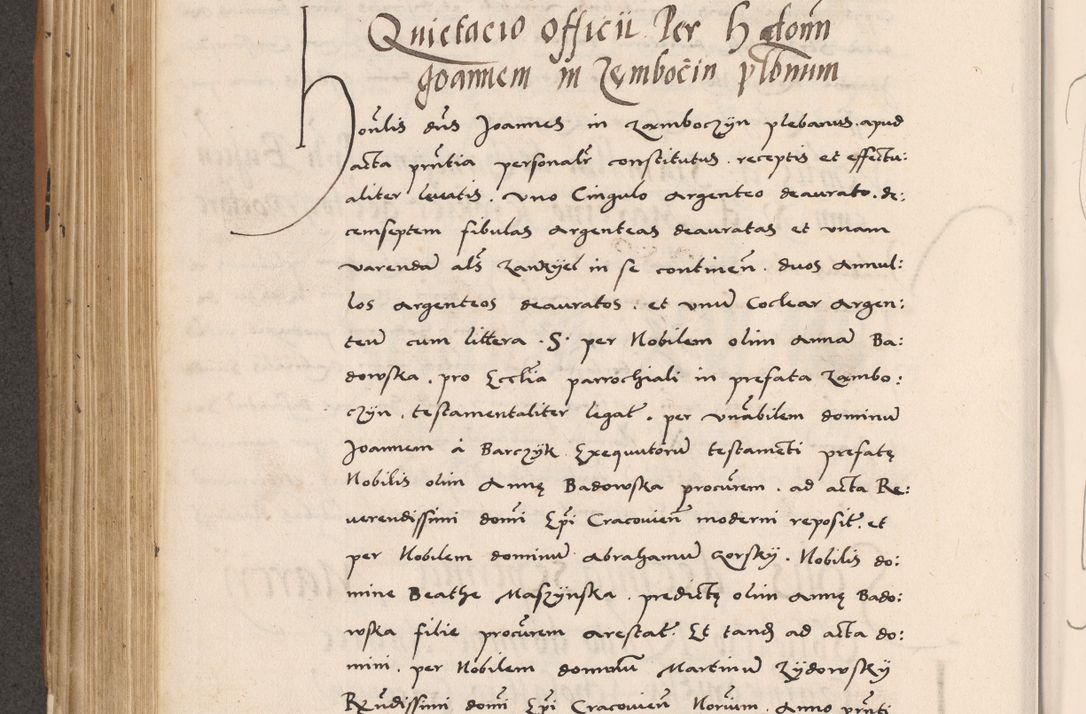 Quietacio officii Per H dom̃
Joannem in Zembocin plb̃num
Honõlis dñs Joannes in Zamboczyn plebanus apud
acta pñtia personalr̃ constitutus . receptis et effectu:
aliter levatis . vno Cingulo argenteo deaurato . de:
cemseptem fibulas argenteas deauratas et vnam
varendã als̃ Zanzyel in se continen̄ . duos annul:
los argenteos deauratos . et vnũ Coclear argen:
teũ cum littera . S . per Nobilem olim Annã Ba:
dowska . pro Eccl̃ia parrochiali in prefata Zambo:
czyn . testamentaliter legat̃ . per vnãbilem dominũ
Joannem à Barczyk Exequutorũ testamẽti prefatę
Nobilis olim Annę Badowska procũrem . ad acta Re:
verendissimi domĩ Ep̃i Cracovien̄ moderni reposit̃ . et
per Nobilem dominũ Abrahamũ Zorsky . Nobilis do:
mine Beathe Maszynska . predictę olim Annę Bado:
wska filie procũrem arestat̃ . Et tandẽ ad acta do:
mini . per Nobilem domimũ Martinũ Zydowsky
Rẽndissimi domĩ Ep̃i Cracovien̄ Norũm . Anno pñti